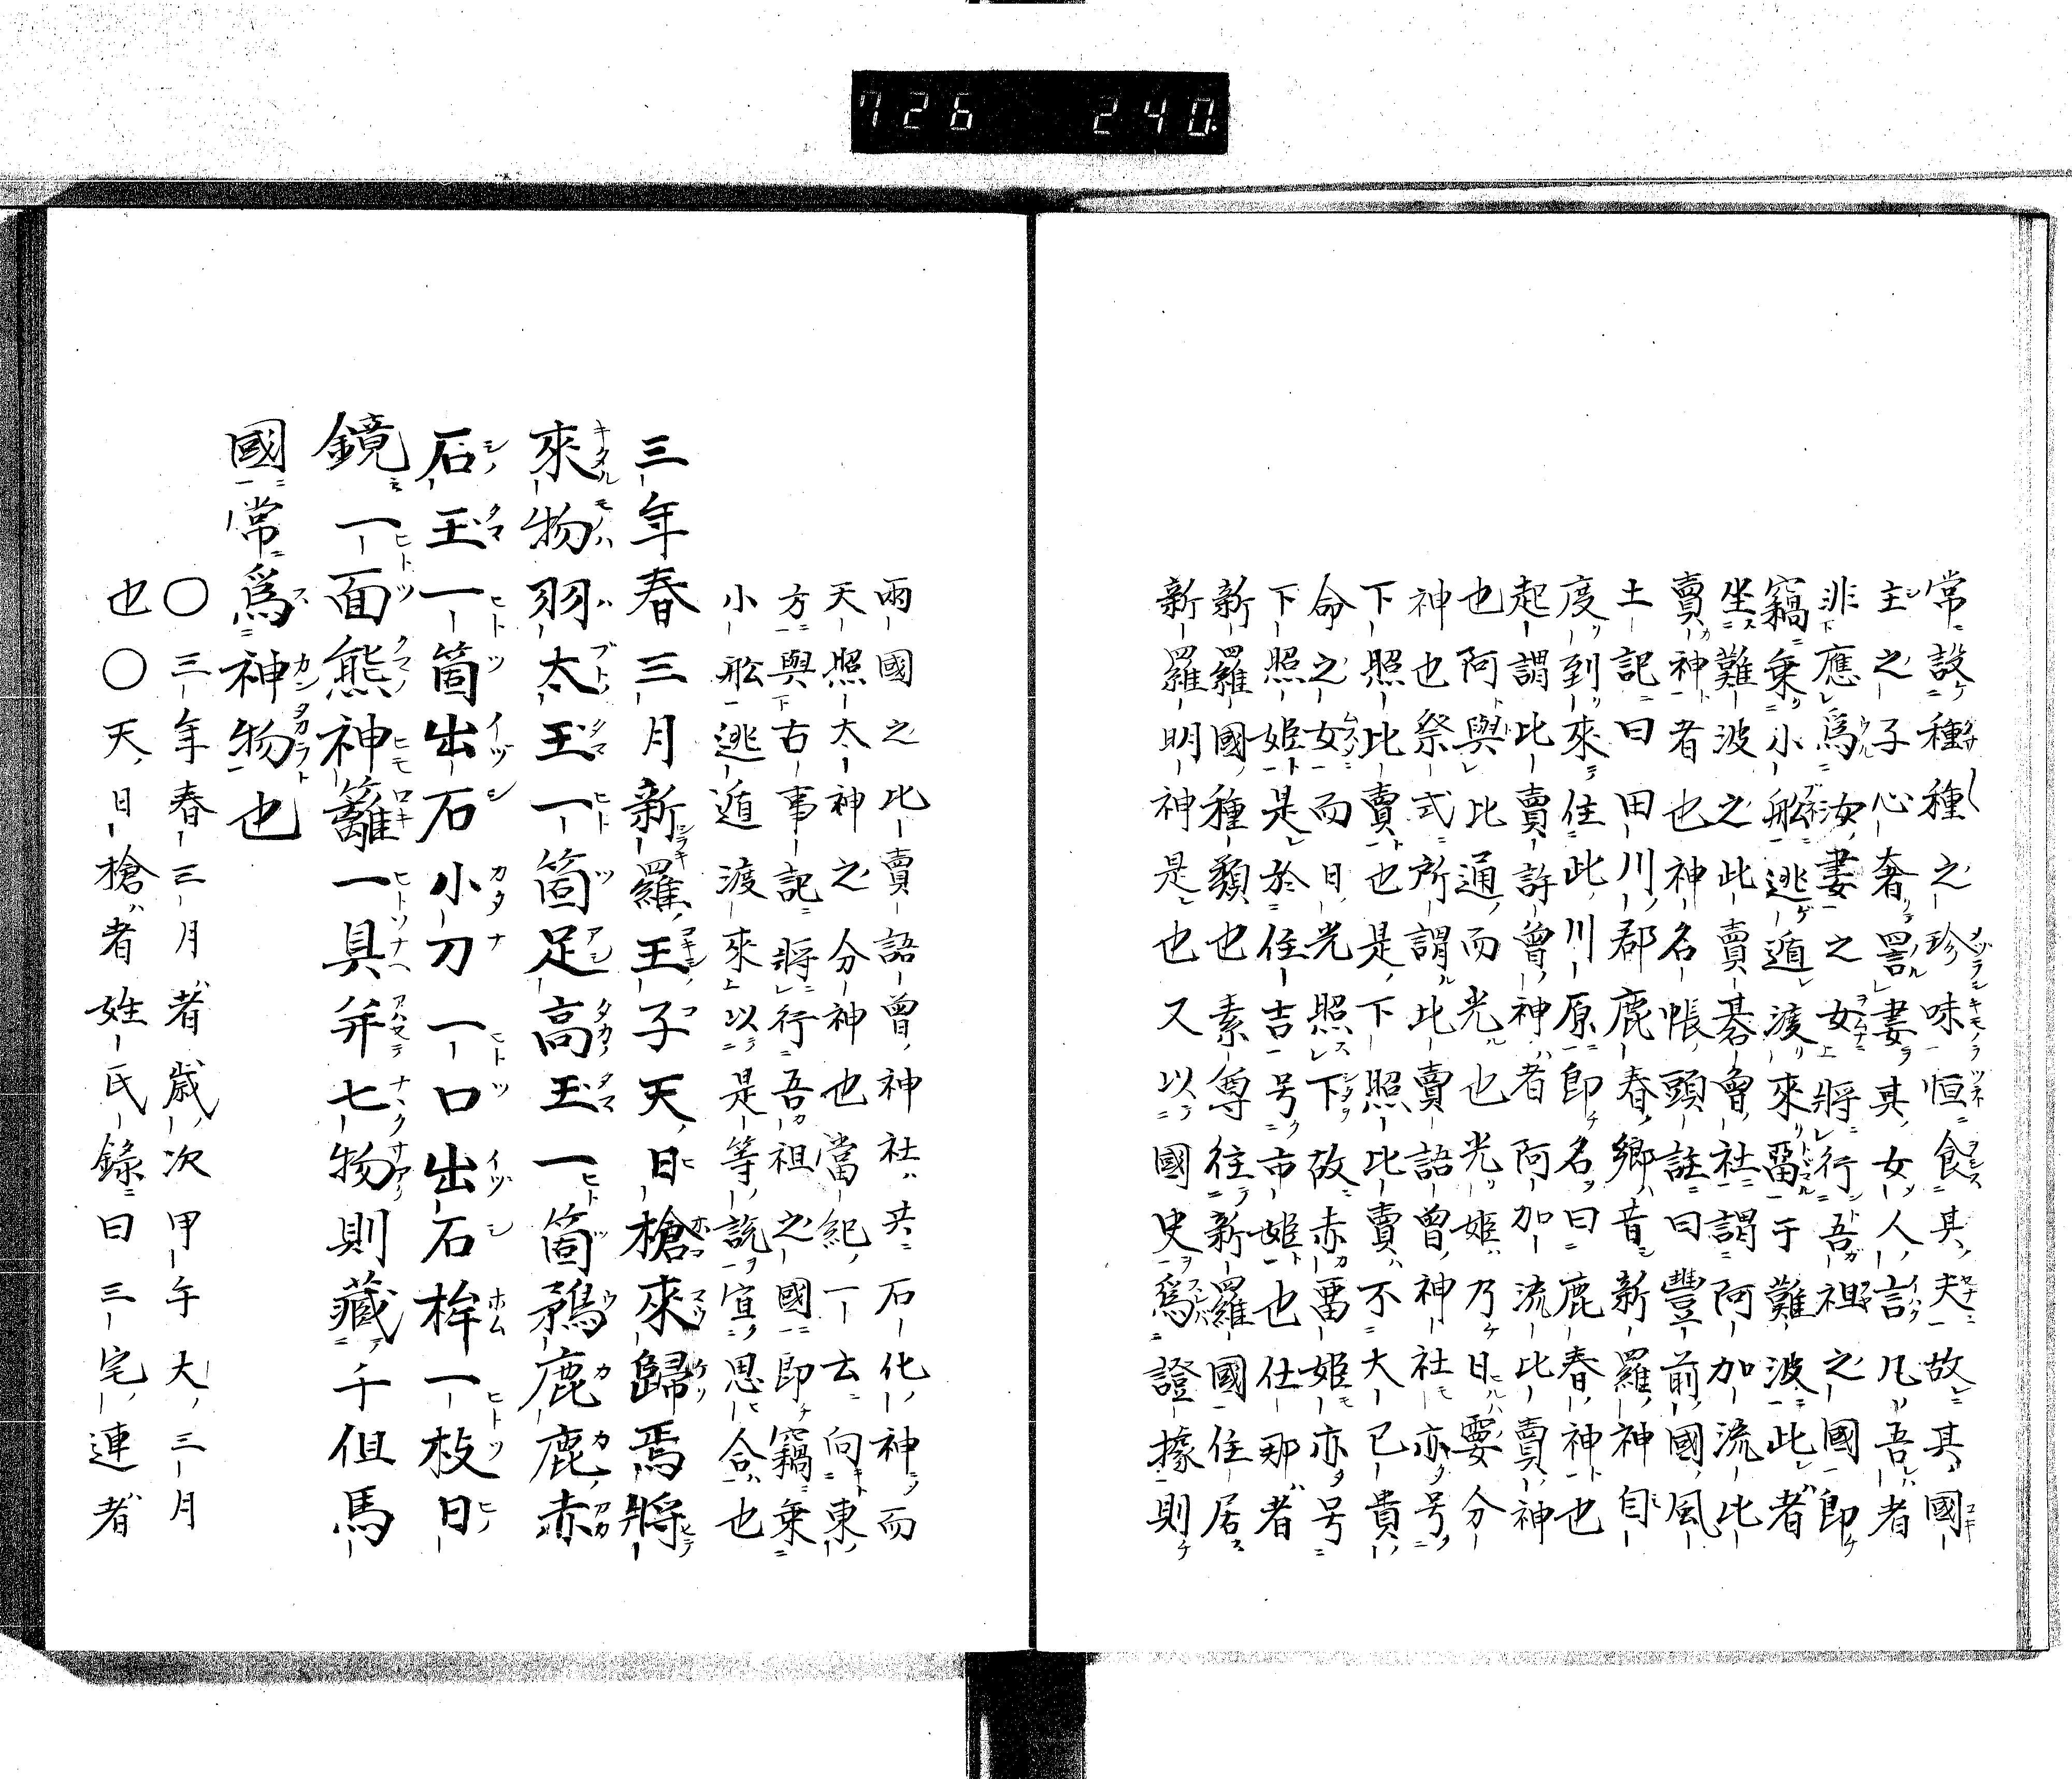 726 240
常設種種之珍味恒食其夫故其國
主之子心奢詈妻其女人言凡吾者
非應爲汝妻之女將行吾祖之國即
竊乗小舩逃遁渡來畱于難波此者
坐難波之比賣碁曾社謂阿加流比
賣神者也神名帳頭註曰豐前國風
土記曰田川郡鹿春郷昔新羅神自
度到來住此川原即名曰鹿春神也
起謂比賣許曾神者阿加流比賣神
也阿與比通而光也光姫乃日要分
神也祭式所謂比賣語曾神社亦号
下照比賣也是下照比賣不大已貴
命之女而日光照下故赤畱姫亦号
下照姫是於住吉号市姫也仕那者
新羅國種類也素尊往新羅國住居
新羅明神是也又以國史爲證據則
兩國之比賣語曾神社共石化神而
天照太神之分神也當紀一云向東
方與古事記將行吾祖之國即竊乗
小舩逃遁渡來以是等説宜思合也
三年春三月新羅王子天日槍來歸焉將
來物羽太玉一箇足高玉一箇鵜鹿鹿赤
石玉一箇出石小刀一口出石桙一枝日
鏡一面熊神籬一具并七物則藏于但馬
國常爲神物也
〇三年春三月者歳次甲午大三月
也〇天日槍者姓氏録曰三宅連者